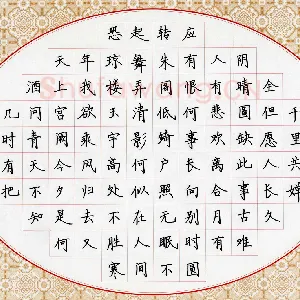 几时有把
酒问青天不知
天上宫阙今夕是何
年我欲乘风归去又
恐琼楼玉宇高处不胜寒
起舞弄清影何似在人间
转朱阁低绮户照无眠不
应有恨何事长向别时圆
人有悲欢离合月有
阴晴圆缺此事古难
全但愿人长久
千里共婵